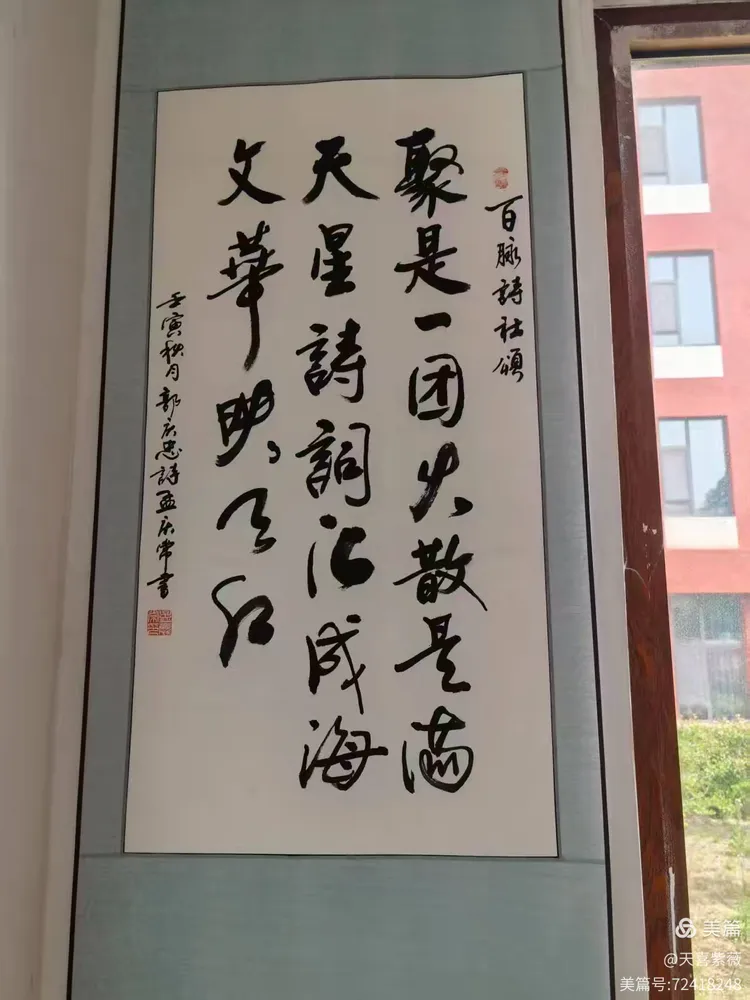 百脉詩社頌
聚是一团火散是满
天星詩詞汇成海
文華映天红
壬寅秋月郭庆忠詩孟庆常書
美篇
@天喜紫薇
美篇号:72418248